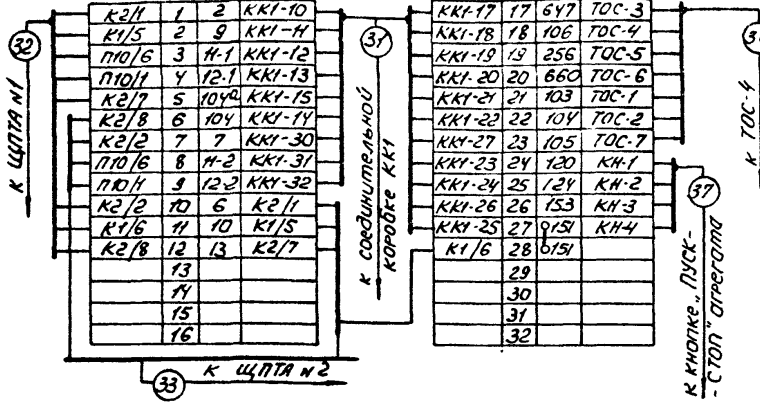 К2/1 1 2 КК1-10
К1/5 2 9 КК1-11
П10/6 3 11-1 КК1-12
П10/1 4 12-1 КК1-13
К2/7 5 104а КК1-15
К2/8 6 104 КК1-14
К2/2 7 7 КК1-30
П10/6 8 11-2 КК1-31
П10/1 9 12-2 КК1-32
К2/2 10 6 К2/1
К1/6 11 10 К1/5
К2/8 12 13 К2/7
13
14
15
16
32
К ЩПТА №1
31
К соединительной
коробке КК1
33
К ЩПТА №2
КК1-17 17 647 ТОС-3
КК1-18 18 106 ТОС-4
КК1-19 19 256 ТОС-5
КК1-20 20 660 ТОС-6
КК1-21 21 103 ТОС-1
КК1-22 22 104 ТОС-2
КК1-27 23 105 ТОС-7
КК1-23 24 120 КН-1
КК1-24 25 124 КН-2
КК1-26 26 153 КН-3
КК1-25 27 151 КН-4
К1/6 28 151
29
30
31
32
К ТОС-4
37
К кнопке „Пуск-
-Стоп" агрегата